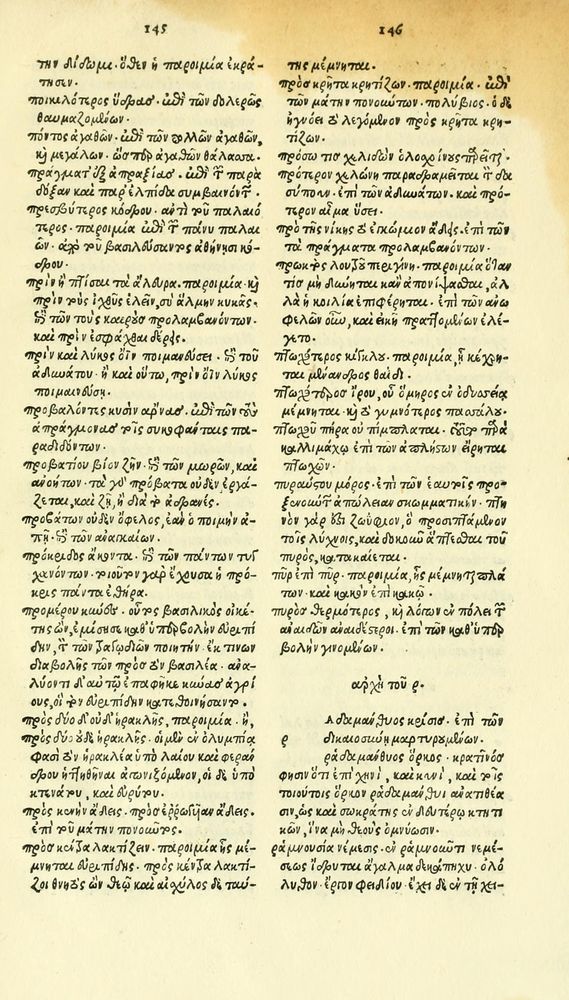 145
την δίδωμι. ὅθεν ἡ παροιμία ἐκρά-
τησεν.
ποικιλώτερος ὕδρας. ἐπὶ τῶν δολερῶς
θαυμαζομένων.
πόντος ἀγαθῶν. ἐπὶ τῶν πολλῶν ἀγαθῶν,
κ̀ μεγάλων. ὥσπερ ἀγαθῶν θάλασσα.
πράγματ' ἐξ ἀπραξίας. ἐπὶ τ παρὰ
δόξαν καὶ παρ' ἐλπίδα συμβαινόντ.
πρεσβύτερος κόδρου. ἀντὶ τοῦ παλαιό
τερος. παροιμία ἐπὶ τ πάνυ παλαι
ῶν. ἀπὸ τοῦ βασιλεύσαντος ἀθήνησι κό-
δρου.
πρὶν ἢ πτίσαι τὰ ἄλευρα. παροιμία. κ̀
πρὶν τοὺς ἰχθῦς ἑλεῖν, σὺ ἅλμην κυκᾶς.
ἐπὶ τῶν τοὺς καιροὺς προλαμβανόντων.
καὶ πρὶν ἐσφάχθαι δέρεις.
πρὶν καὶ λύκος ὄϊν ποιμανεύσει. ἐπὶ τοῦ
ἀδυνάτου. ἢ καὶ οὕτω, πρὶν ὄϊν λύκος
ποιμαινεύσῃ.
προβαλόντες κυσὶν ἄρνας. ἐπὶ τῶν τοὺς
ἀπράγμονας τοῖς συκοφάνταις πα-
ραδιδόντων.
προβατίου βίον ζῆν. ἐπὶ τῶν μωρῶν, καὶ
ἀνοήτων. τὰ γὸ πρόβατα οὐδὲν ἐργά-
ζεται, καὶ ζῇ, ἢ διὰ τ ἀσθενές.
προβάτων οὐδὲν ὄφελος, ἐὰν ὁ ποιμὴν ἀ-
πῇ. ἐπὶ τῶν ἀναγκαίων.
πρόκριδος ἄκοντα. ἐπὶ τῶν πάντων τυγ
χανόντων. τοιοῦτον γὰρ ἔχουσα ἡ πρό-
κρις πάντα ἐθήρα.
προμέρου κύνες. οὗτος βασιλικὸς οἰκέ-
της ὤν, ἐμίσησε καθ' ὑπερβολὴν εὐριπί
δην, τ τῶν τραγῳδιῶν ποιητήν. ἔκ τινων
διαβολῆς τῶν πρὸς τὸν βασιλέα. ἀνα-
λύοντι δ' αὐτῷ ἐπαφῆκε κύνας ἀγρί
ους, οἳ τὸν εὐριπίδην κατεθοινήσαντο.
πρὸς δύο δ' οὐδ' ἡρακλῆς, παροιμία. ἤ,
πρὸς δύο οὐδὲ ἡρακλῆς. οἱ μὲν ἐν ὀλυμπίᾳ
φασὶ τὸν ἡρακλέα ὑπὸ λαίου καὶ φεράν
δρου ἡττηθῆναι ἀγωνιζόμενον, οἱ δὲ ὑπὸ
κτεάτου, καὶ εὐρύτου.
πρὸς κενὴν ᾄδεις. πρὸς ἐρρωγυῖαν ᾄδεις.
ἐπὶ τοῦ μάτην πονοῦντος.
πρὸς κέντρα λακτίζειν. παροιμία ἧς μέ-
μνηται εὐριπίδης. πρὸς κέντρα λακτί-
ζοι θνητὸς ὢν θεῷ καὶ αἰσχύλος δὲ ταύ-
146
της μέμνηται.
πρὸς κρῆτα κρητίζων. παροιμία. ἐπὶ
τῶν μάτην πονούντων. πολύβιος. ὁ δὲ
ἠγνόει τὸ λεγόμενον πρὸς κρῆτα κρη-
τίζων.
πρόσω τις χελιδὼν
πρότερον χελώνη παραδραμεῖται τ δα
σύποδα. ἐπὶ τῶν ἀδυνάτων. καὶ πρό-
τερον αἷμα ὕσει.
πρὸ τῆς νίκης τὸ ἐγκώμιον ᾄδεις. ἐπὶ τῶν
τὰ πράγματα προλαμβανόντων.
πρωκτὸς λουτροῦ περιγίνῃ. παροιμία ὅταν
τις μὴ δύνηται κἂν ἀπονίψασθαι, ἀλ
λὰ ἡ κοιλία ἐπιφέρηται. ἐπὶ τῶν ἀνω
φελῶν οὖν, καὶ εἰκῆ πραττομένων ἐλέ-
γετο.
πτωχότερος κίγκλου. παροιμία, ᾗ κέχρη-
ται μένανδρος θαΐδι.
πτωχότερος ἴρου, οὗ ὅμηρος ἐν ὀδυσσείᾳ
μέμνηται. κ̀ τὸ γυμνότερος παττάλου.
πτωχοῦ πήρα οὐ πίμπλαται. τοῦτο παρὰ
καλλιμάχῳ ἐπὶ τῶν ἀπλήστων εἴρηται
πτωχῶν.
πυραύστου μόρος. ἐπὶ τῶν ἑαυτοῖς προ-
ξενούντ ἀπώλειαν σκωμματικήν. πτη
νὸν γάρ ἐστι ζωΰφιον, ὃ προσιπτάμενον
τοῖς λύχνοις, καὶ δοκοῦν ἅπτεσθαι τοῦ
πυρός, κατακαίεται.
πῦρ ἐπὶ πῦρ. παροιμία, ἧς μέμνηται πλά
των. καὶ κακὸν ἐπὶ κακῷ.
πυρὸς θερμότερος, κ̀ λόγων ἐν πόλει τ
ἀναιδῶν ἀναιδέστεροι. ἐπὶ τῶν καθ' ὑπερ
βολὴν γινομένων.
ἀρχὴ τοῦ ρ.
Αδαμάνθυος κρίσις. ἐπὶ τῶν
ρ δικαιοσύνῃ μαρτυρουμένων.
ῥαδαμάνθυος ὅρκος. κρατῖνός
φησιν ὅτι ἐπὶ χηνί, καὶ κυνί, καὶ τοῖς
τοιούτοις ὅρκον ῥαδαμάνθυϊ ἀνατιθέα
σιν, ὡς καὶ σωκράτης ἐν δευτέρῳ κτητι
κῶν, ἵνα μὴ θεοὺς ὀμνύωσιν.
ῥαμνουσία νέμεσις. ἐν ῥαμνοῦντι νεμέ-
σεως ἵδρυται ἄγαλμα δεκάπηχυ. ὁλό
λιθον. ἔργον φειδίου. ἔχει δὲ ἐν τῇ χει-